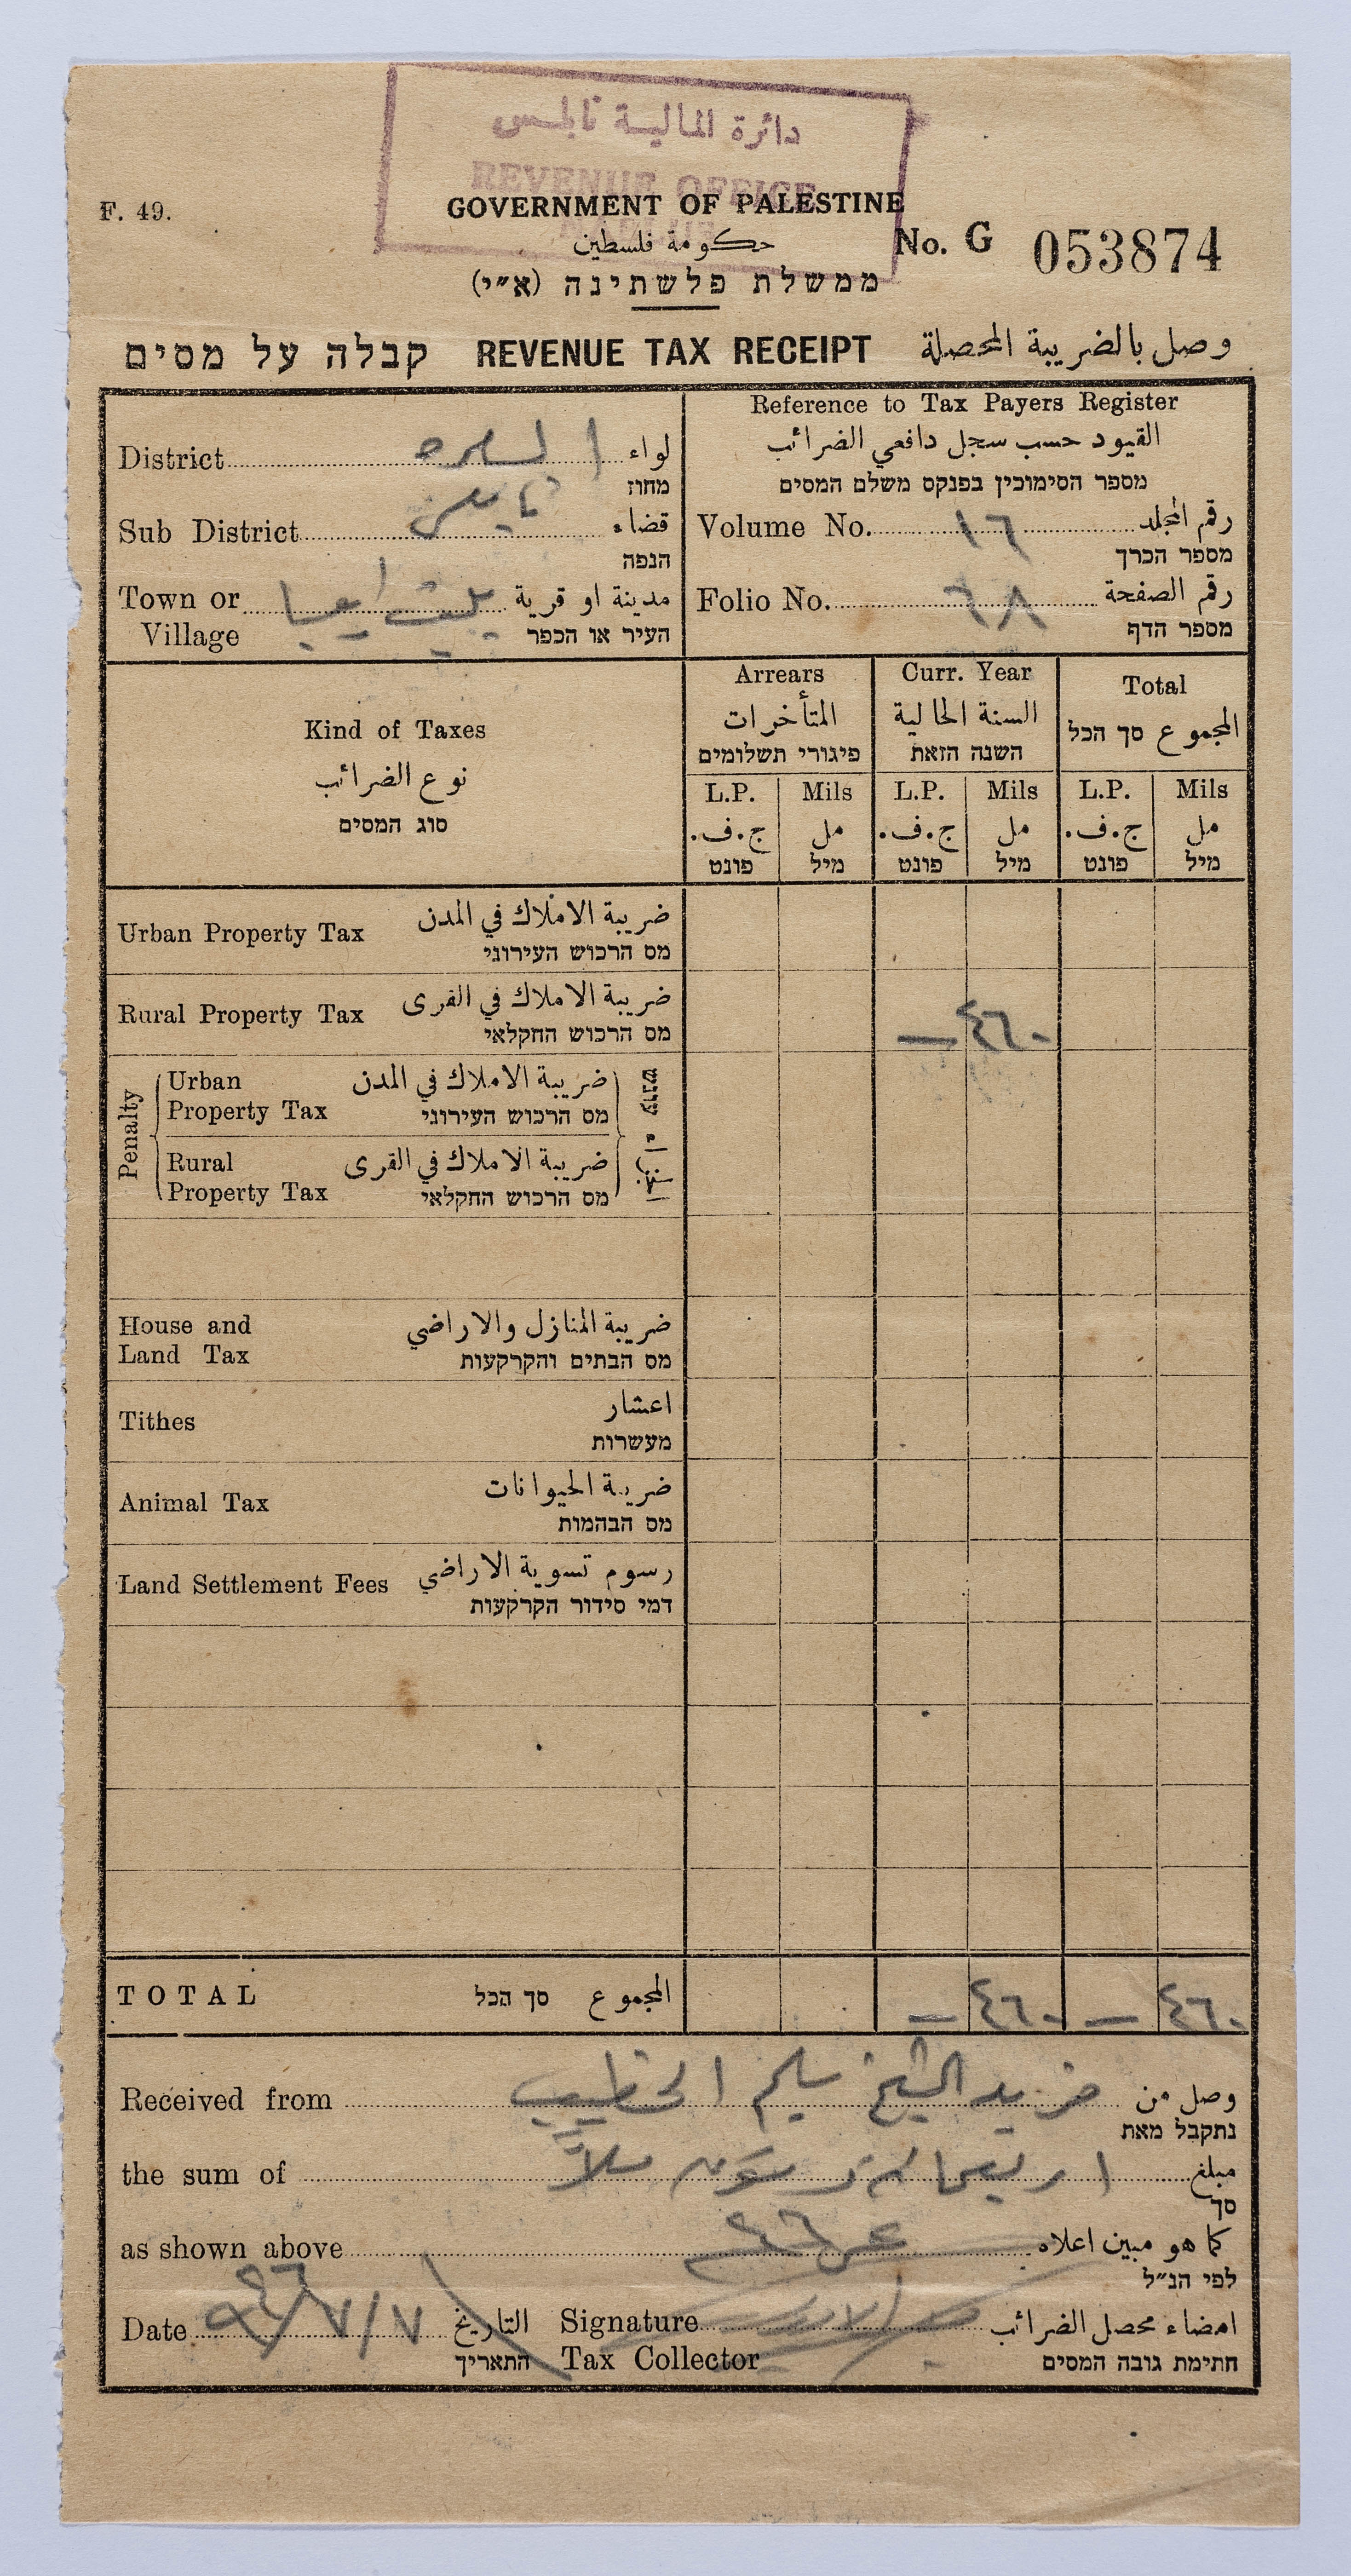 دائرة المالية نابلس
REVENUE OFFICE
F. 49.
GOVERNMENT OF PALESTINE
حكومة فلسطين
No. G 053874
ממשלת פלשתינה (א״י)
קבלה על מסים REVENUE TAX RECEIPT وصل بالضريبة المحصلة
District السامره لواء
מחוז
Sub District نابلس قضاء
הנפה
Town or بيت ايبا مدينة او قرية
Village העיר או הכפר
Reference to Tax Payers Register
القيود حسب سجل دافعي الضرائب
מספר הסימוכין בפנקס משלם המסים
Volume No. ١٦ رقم المجلد
מספר הכרך
Folio No. ٦٨ رقم الصفحة
מספר הדף
Kind of Taxes
نوع الضرائب
סוג המסים
Arrears
المتأخرات
פיגורי תשלומים
Curr. Year
السنة الحالية
השנה הזאת
Total
المجموع סך הכל
L.P. Mils L.P. Mils L.P. Mils
ج.ف. مل ج.ف. مل ج.ف. مل
פונט מיל פונט מיל פונט מיל
Urban Property Tax ضريبة الاملاك في المدن
מס הרכוש העירוני
Rural Property Tax ضريبة الاملاك في القرى
מס הרכוש החקלאי
— ٤٦٠
Penalty
Urban ضريبة الاملاك في المدن
Property Tax מס הרכוש העירוני
עונש
Rural ضريبة الاملاك في القرى
Property Tax מס הרכוש החקלאי
House and ضريبة المنازل والاراضي
Land Tax מס הבתים והקרקעות
Tithes اعشار
מעשרות
Animal Tax ضريبة الحيوانات
מס הבהמות
Land Settlement Fees رسوم تسوية الاراضي
דמי סידור הקרקעות
TOTAL סך הכל المجموع — ٤٦٠ — ٤٦٠
Received from فريد الشيخ سليم الخطيب وصل من
נתקבל מאת
the sum of اربعمائة وستون ملاً مبلغ
סך
as shown above كما هو مبين اعلاه
לפי הנ״ל
Date ٧/٧/٩٤٦ التاريخ Signature امضاء محصل الضرائب
התאריך Tax Collector חתימת גובה המסים